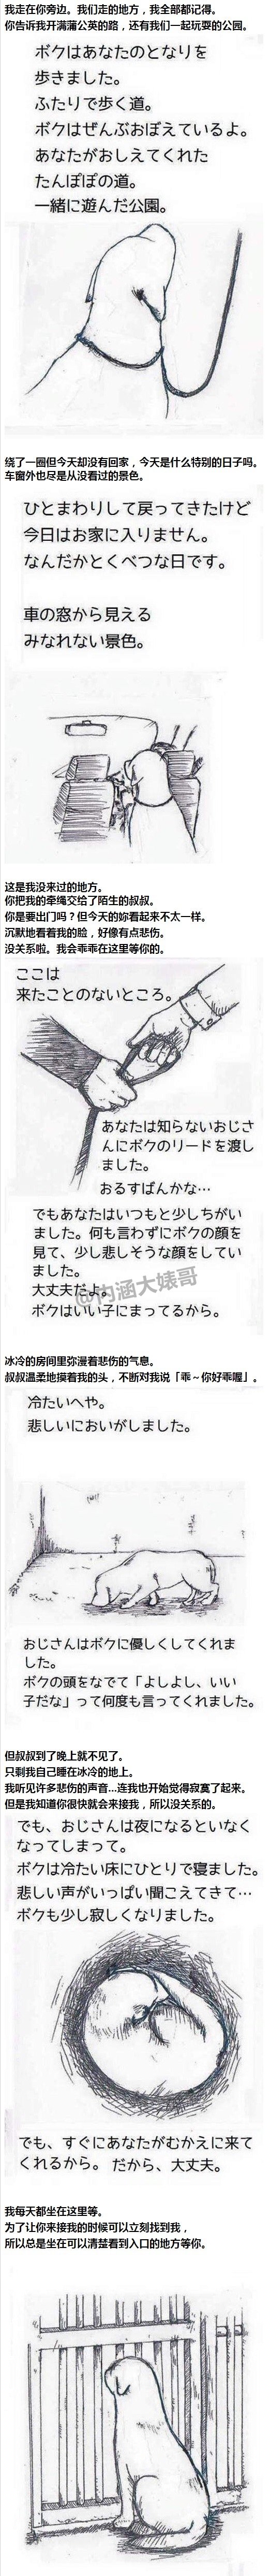 我走在你旁边。我们走的地方，我全部都记得。
你告诉我开满蒲公英的路，还有我们一起玩耍的公园。
ボクはあなたのとなりを
歩きました。
ふたりで歩く道。
ボクはぜんぶおぼえているよ。
あなたがおしえてくれた
たんぽぽの道。
一緒に遊んだ公園。
绕了一圈但今天却没有回家，今天是什么特别的日子吗。
车窗外也尽是从没看过的景色。
ひとまわりして戻ってきたけど
今日はお家に入りません。
なんだかとくべつな日です。
車の窓から見える
みなれない景色。
这是我没来过的地方。
你把我的牵绳交给了陌生的叔叔。
你是要出门吗？但今天的妳看起来不太一样。
沉默地看着我的脸，好像有点悲伤。
没关系啦。我会乖乖在这里等你的。
ここは
来たことのないところ。
あなたは知らないおじさ
んにボクのリードを渡し
ました。
おるすばんかな…
でもあなたはいつもと少しちがい
ました。何も言わずにボクの顔を
見て、少し悲しそうな顔をしてい
ました。
大丈夫だよ。
ボクはいい子にまってるから。
@内涵大婊哥
冰冷的房间里弥漫着悲伤的气息。
叔叔温柔地摸着我的头，不断对我说「乖～你好乖喔」。
冷たいへや。
悲しいにおいがしました。
おじさんはボクに優しくしてくれま
した。
ボクの頭をなでて「よしよし、いい
子だな」って何度も言ってくれました。
但叔叔到了晚上就不见了。
只剩我自己睡在冰冷的地上。
我听见许多悲伤的声音...连我也开始觉得寂寞了起来。
但是我知道你很快就会来接我，所以没关系的。
でも、おじさんは夜になるといなく
なってしまって。
ボクは冷たい床にひとりで寝ました。
悲しい声がいっぱい聞こえてきて…
ボクも少し寂しくなりました。
でも、すぐにあなたがむかえに来て
くれるから。だから、大丈夫。
我每天都坐在这里等。
为了让你来接我的时候可以立刻找到我，
所以总是坐在可以清楚看到入口的地方等你。